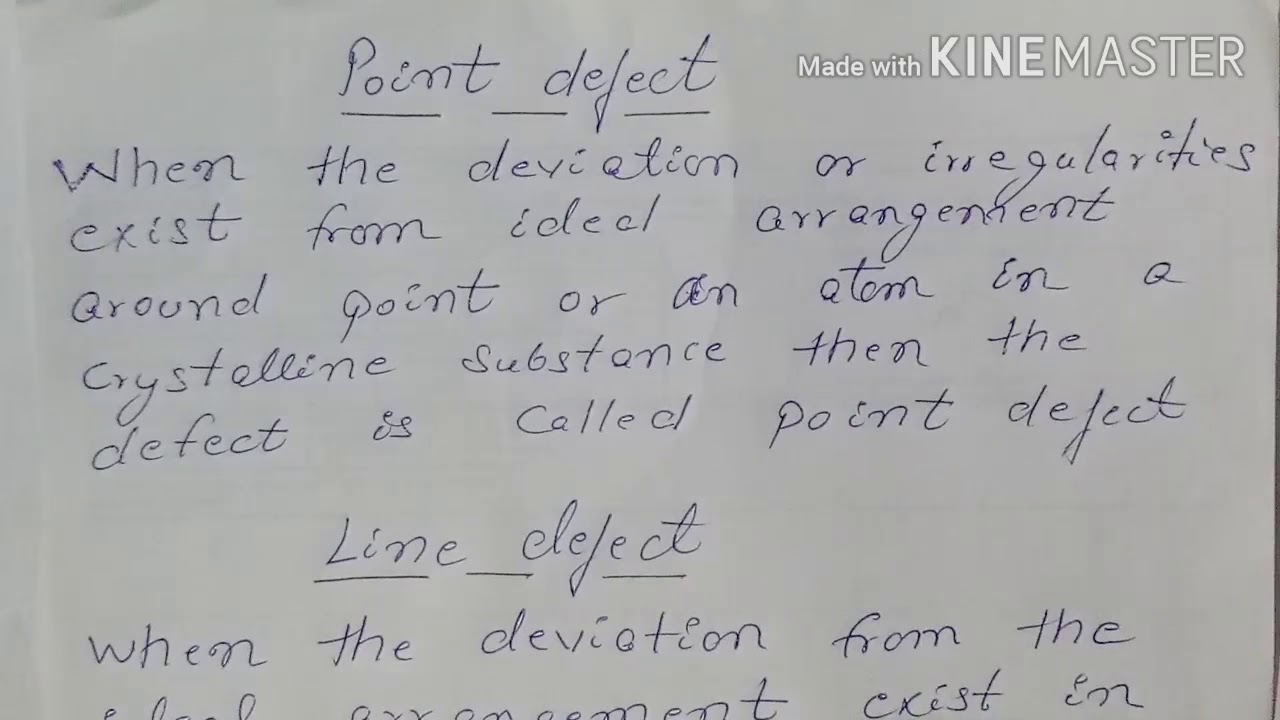 Made with KINEMASTER
Point defect
When the deviation or irregularities
exist from ideal arrangement
around point or an atom in a
crystalline substance then the
defect is called point defect
Line defect
when the deviation from the
ideal arrangement exist in